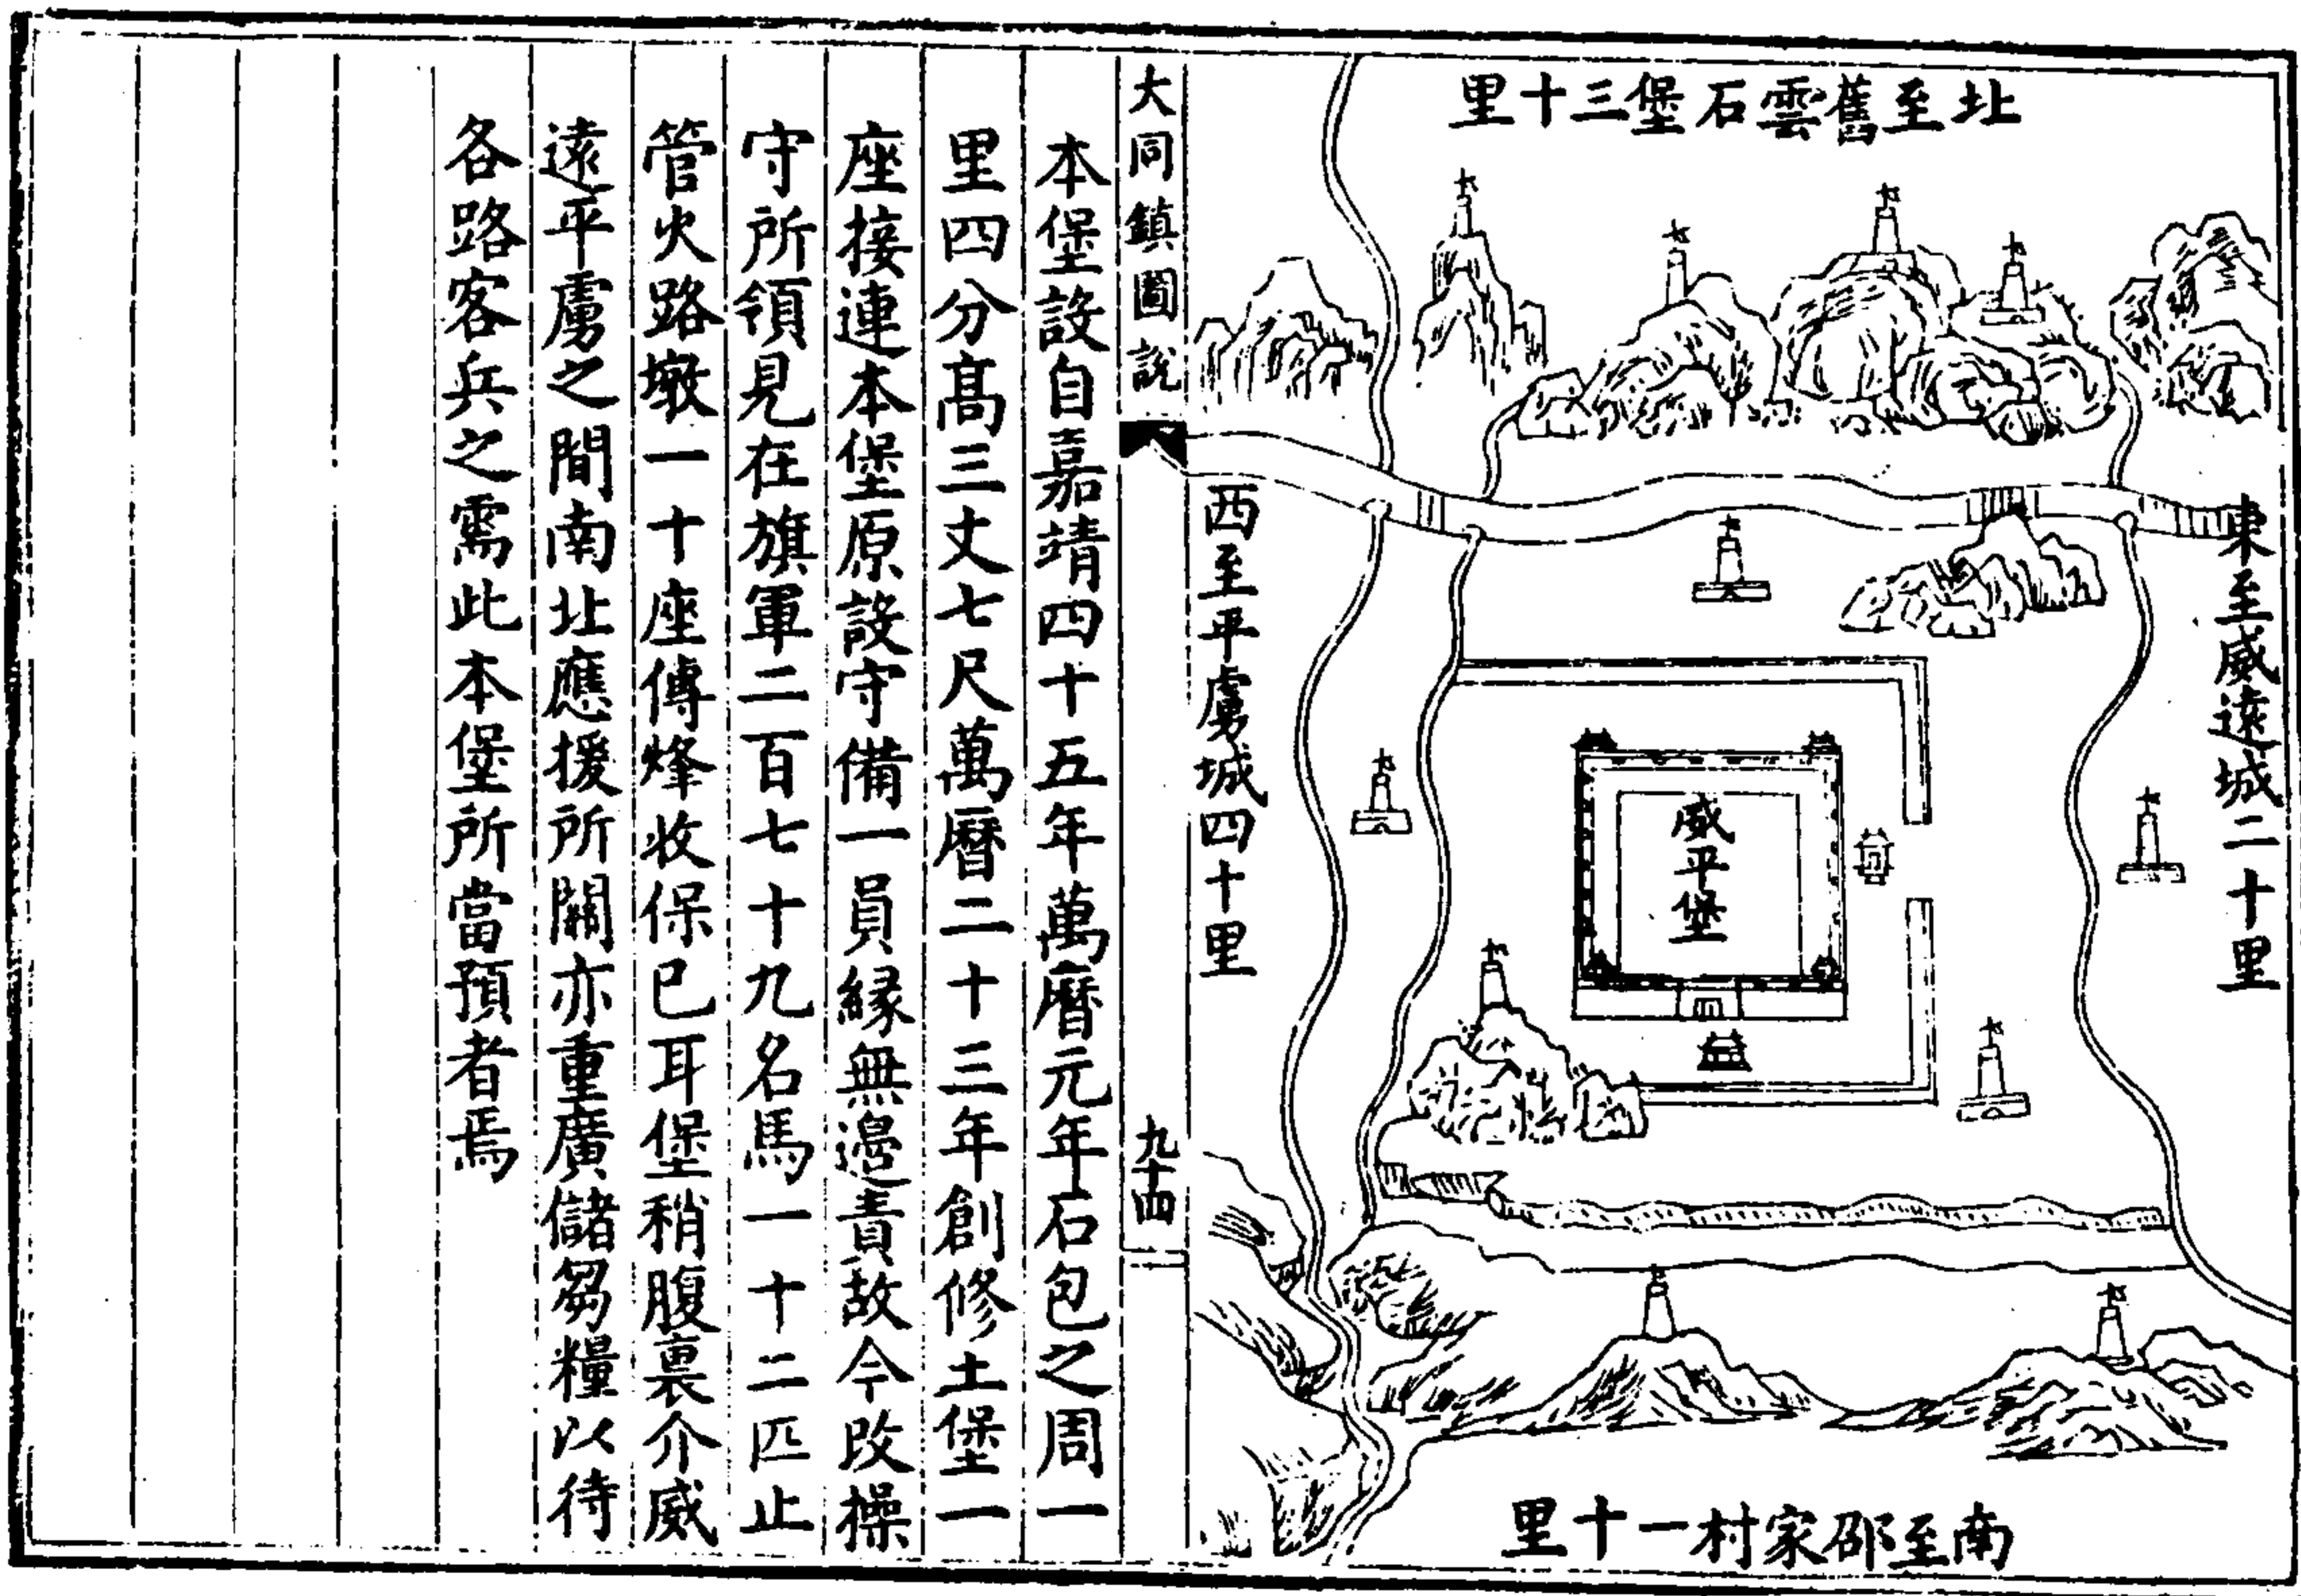 北至舊雲石堡三十里
東至威遠城二十里
威平堡
南至邵家村一十里
西至平虜城四十里
大同鎮圖說
九十四
本堡設自嘉靖四十五年萬曆元年石包之周一
里四分高三丈七尺萬曆二十三年創修土堡一
座接連本堡原設守備一員緣無邊責故今改操
守所領見在旗軍二百七十九名馬一十二匹止
管火路墩一十座傳烽收保已耳堡稍腹裏介威
遠平虜之間南北應援所關亦重廣儲芻糧以待
各路客兵之需此本堡所當預者焉